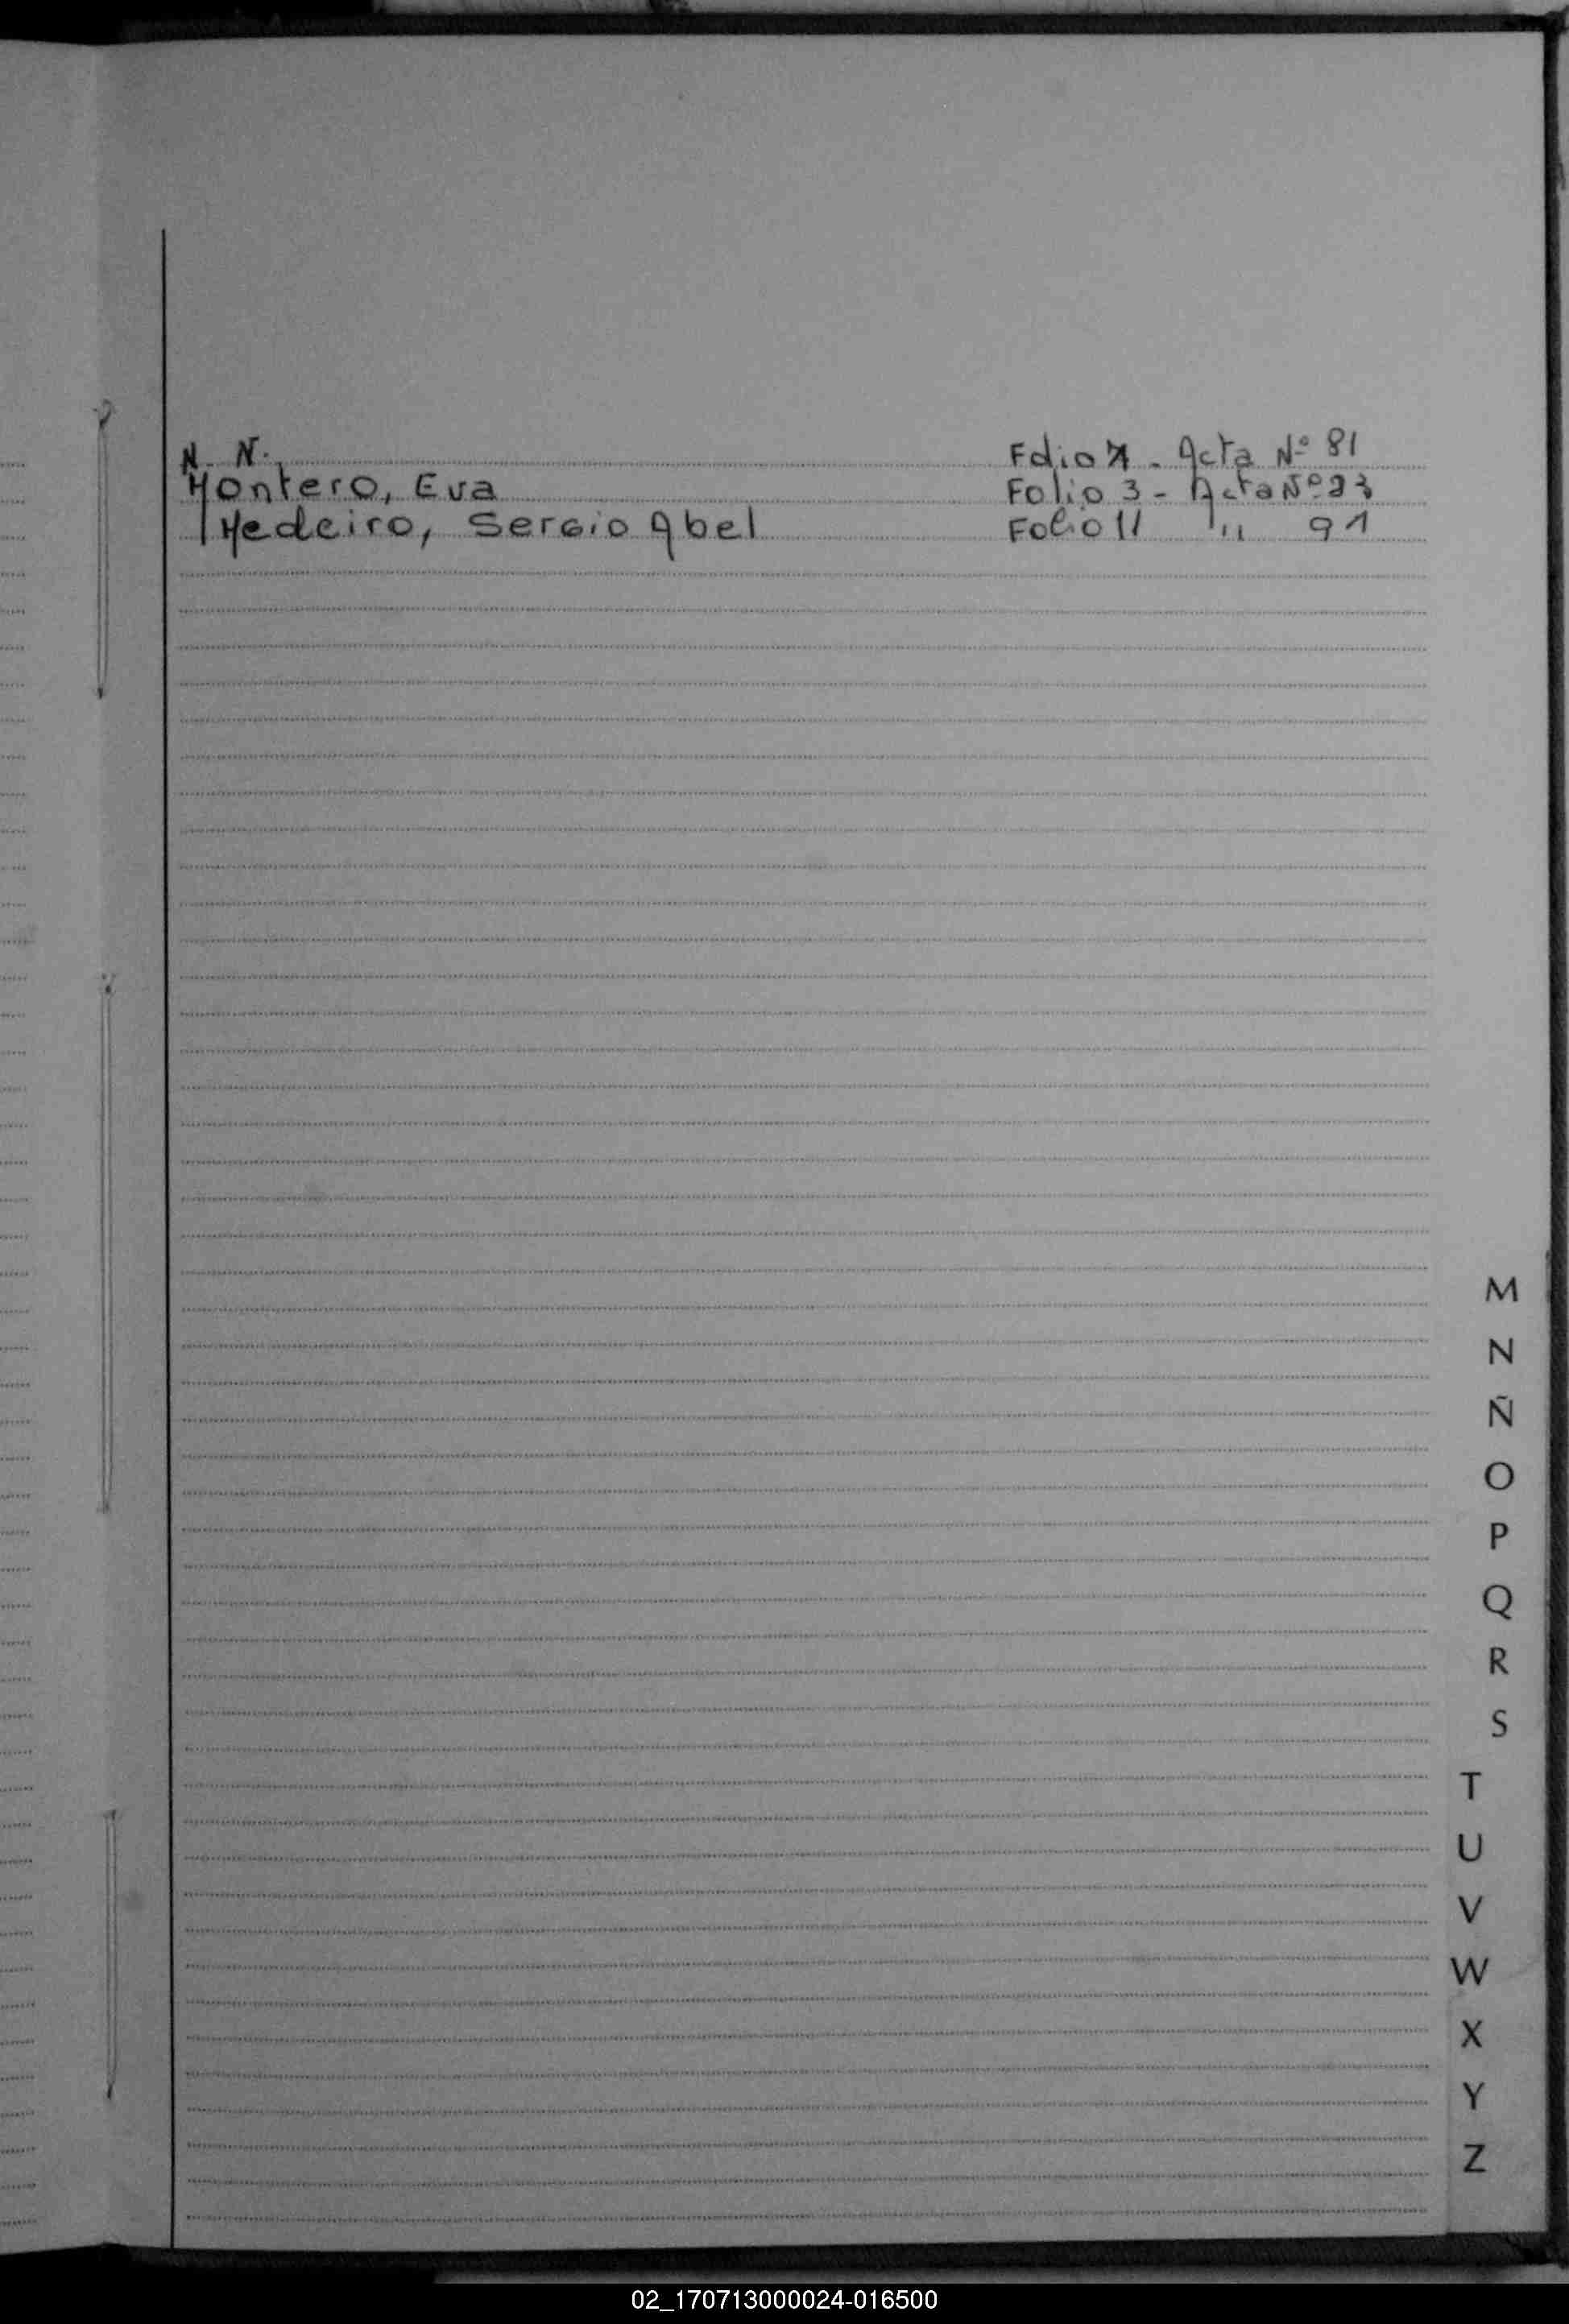 N. N. Folio 1 - Acta Nº 81
Montero, Eva Folio 3 - Acta Nº 83
Medeiro, Sergio Abel Folio 11 " 91
M
N
Ñ
O
P
Q
R
S
T
U
V
W
X
Y
Z
02_170713000024-016500